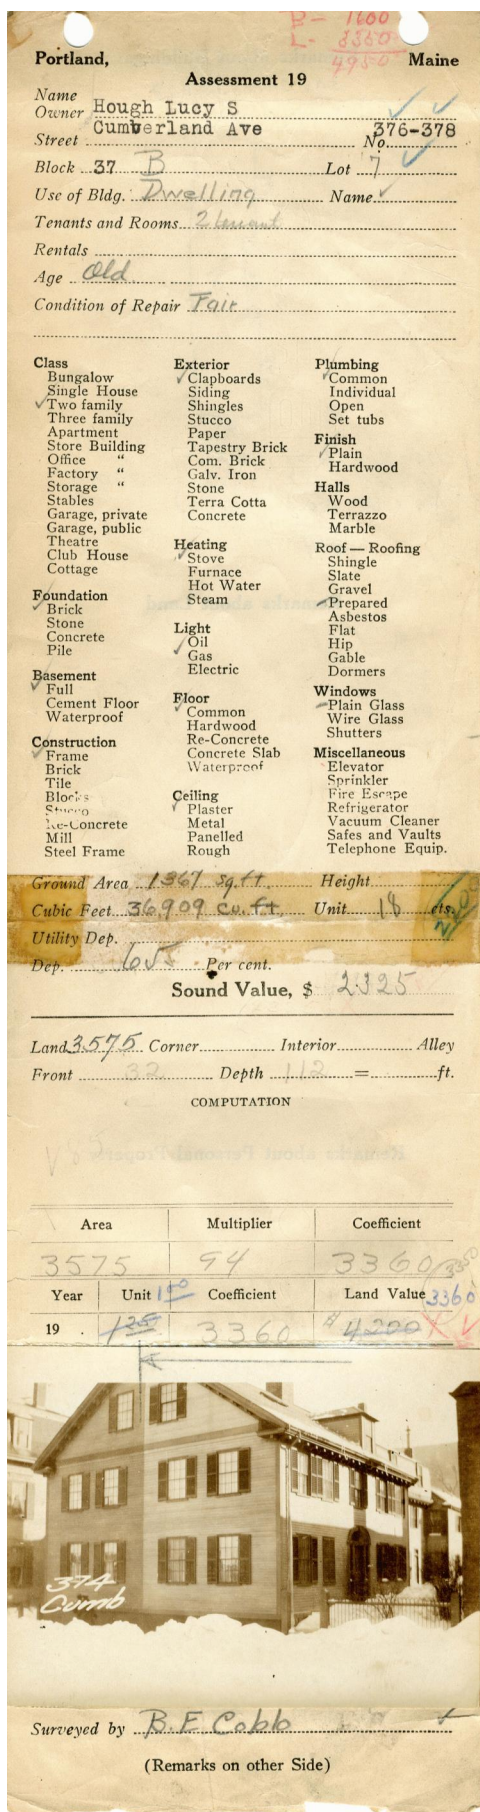 B- 1600
L- 3350
4950
Portland, Maine
Assessment 19
Name
Owner Hough Lucy S
Street Cumberland Ave No. 376-378
Block 37 B Lot 7
Use of Bldg. Dwelling Name
Tenants and Rooms 2 tenant
Rentals
Age Old
Condition of Repair Fair
Class
Bungalow
Single House
Two family
Three family
Apartment
Store Building
Office "
Factory "
Storage "
Stables
Garage, private
Garage, public
Theatre
Club House
Cottage
Foundation
Brick
Stone
Concrete
Pile
Basement
Full
Cement Floor
Waterproof
Construction
Frame
Brick
Tile
Blocks
Stucco
Re-Concrete
Mill
Steel Frame
Exterior
Clapboards
Siding
Shingles
Stucco
Paper
Tapestry Brick
Com. Brick
Galv. Iron
Stone
Terra Cotta
Concrete
Heating
Stove
Furnace
Hot Water
Steam
Light
Oil
Gas
Electric
Floor
Common
Hardwood
Re-Concrete
Concrete Slab
Waterproof
Ceiling
Plaster
Metal
Panelled
Rough
Plumbing
Common
Individual
Open
Set tubs
Finish
Plain
Hardwood
Halls
Wood
Terrazzo
Marble
Roof — Roofing
Shingle
Slate
Gravel
Prepared
Asbestos
Flat
Hip
Gable
Dormers
Windows
Plain Glass
Wire Glass
Shutters
Miscellaneous
Elevator
Sprinkler
Fire Escape
Refrigerator
Vacuum Cleaner
Safes and Vaults
Telephone Equip.
Ground Area 1367 sq.ft. Height
Cubic Feet 36,909 cu.ft. Unit 18 cts.
Utility Dep.
Dep. 65 Per cent.
Sound Value, $ 2325
Land 3575 Corner Interior Alley
Front 32 Depth 112 = ft.
COMPUTATION
Area Multiplier Coefficient
3575 94 3360 3350
Year Unit 1.00 Coefficient Land Value 3360
19 . 1.25 3360 $ 4200
374
Cumb
Surveyed by B.E Cobb
(Remarks on other Side)